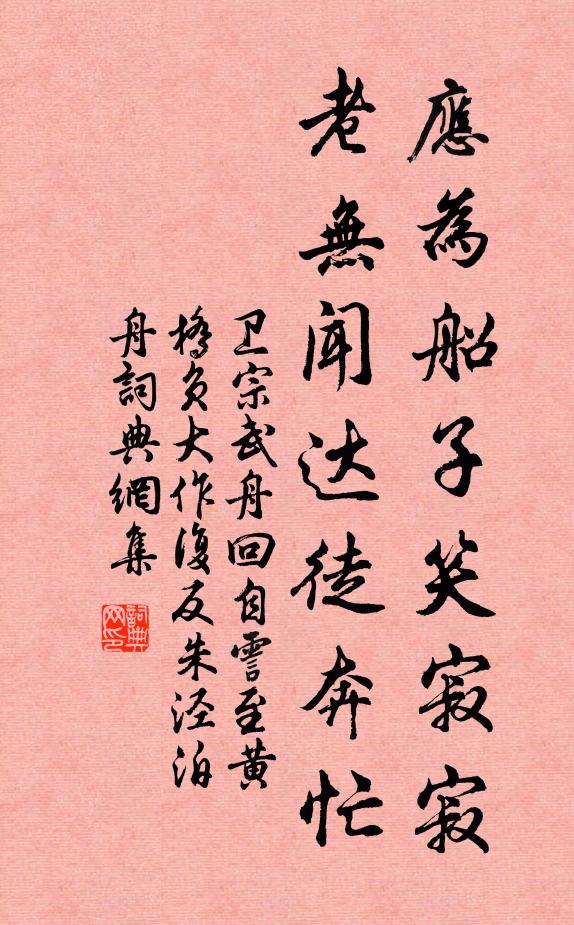 應為船子笑寂寂
老無聞达徒奔忙
卫宗武舟回自霅至黄
橋负大作復反朱泾泊
舟詞典網集
詞典网印